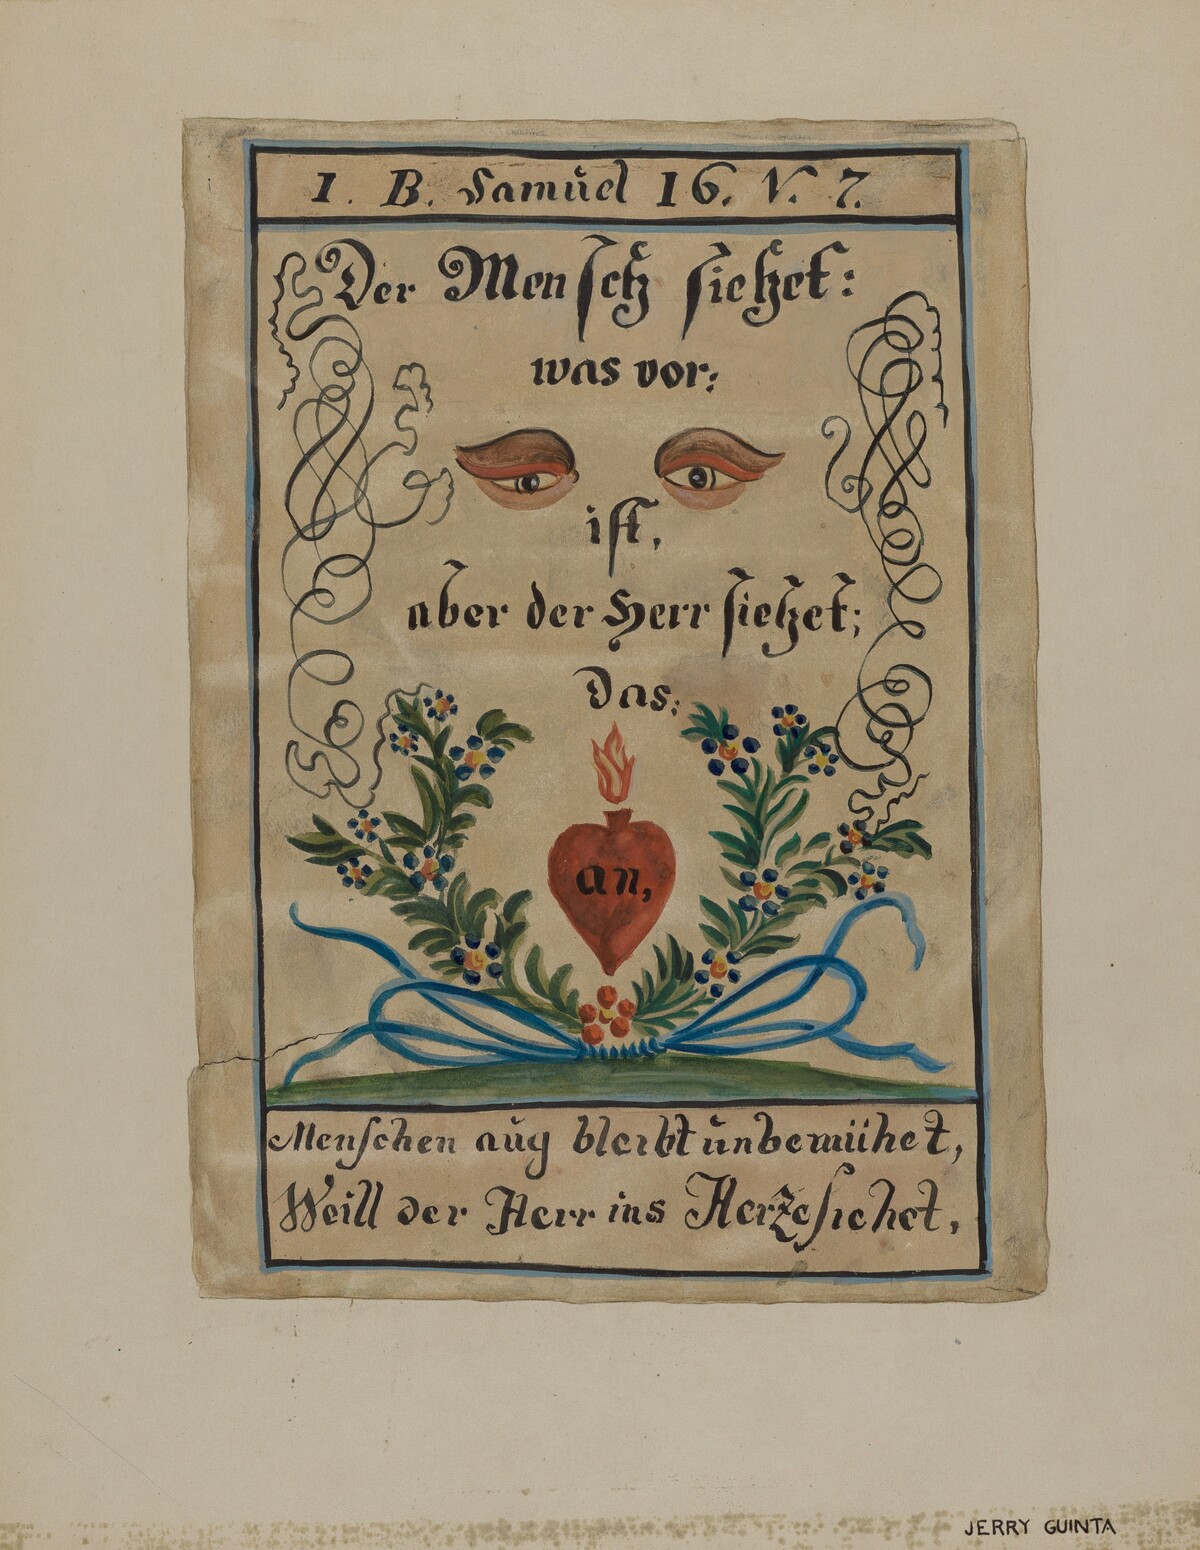 1. B. Samuel 16. V. 7.
Der Mensch siehet:
was vor:
ist,
aber der Herr siehet;
das:
an,
Menschen aug bleibt unbemühet,
Weill der Herr ins Herze siehet,
JERRY GUINTA